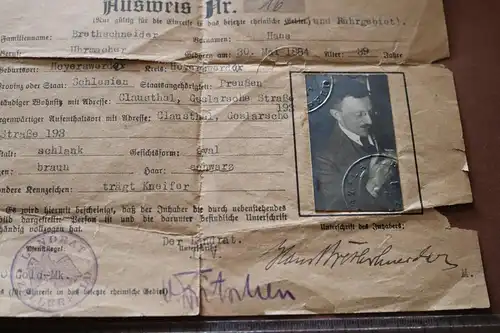 Ausweis - Nr. 16
(Nur gültig für die Einreise in das besetzte rheinische Gebiet) und Ruhrgebiet).
Familienname: Brethschneider Vornamen: Hans
Beruf: Uhrmacher Geboren am 30. Mai 1884 Alter 39 Jahre
Geburtsort: Hoyerswerder Kreis: Hoyerswerder
Provinz oder Staat: Schlesien Staatsangehörigkeit: Preußen
ständiger Wohnsitz mit Adresse: Clausthal, Goslarsche Straße
193
gegenwärtiger Aufenthaltsort mit Adresse: Clausthal, Goslarsche
Straße 193
Gestalt: schlank Gesichtsform: oval
Augen: braun Haar: schwarz
Besondere Kennzeichen: trägt Kneifer
Es wird hiermit bescheinigt, daß der Inhaber die durch nebenstehendes
Lichtbild dargestellte Person ist und die darunter befindliche Unterschrift
eigenhändig vollzogen hat.
Dienstsiegel. Unterschrift des Inhabers:
Der Landrat.
J.V.
Hans Brethschneider
LANDRAT
Gold-Mk.
(für Einreise in das besetzte rheinische Gebiet)